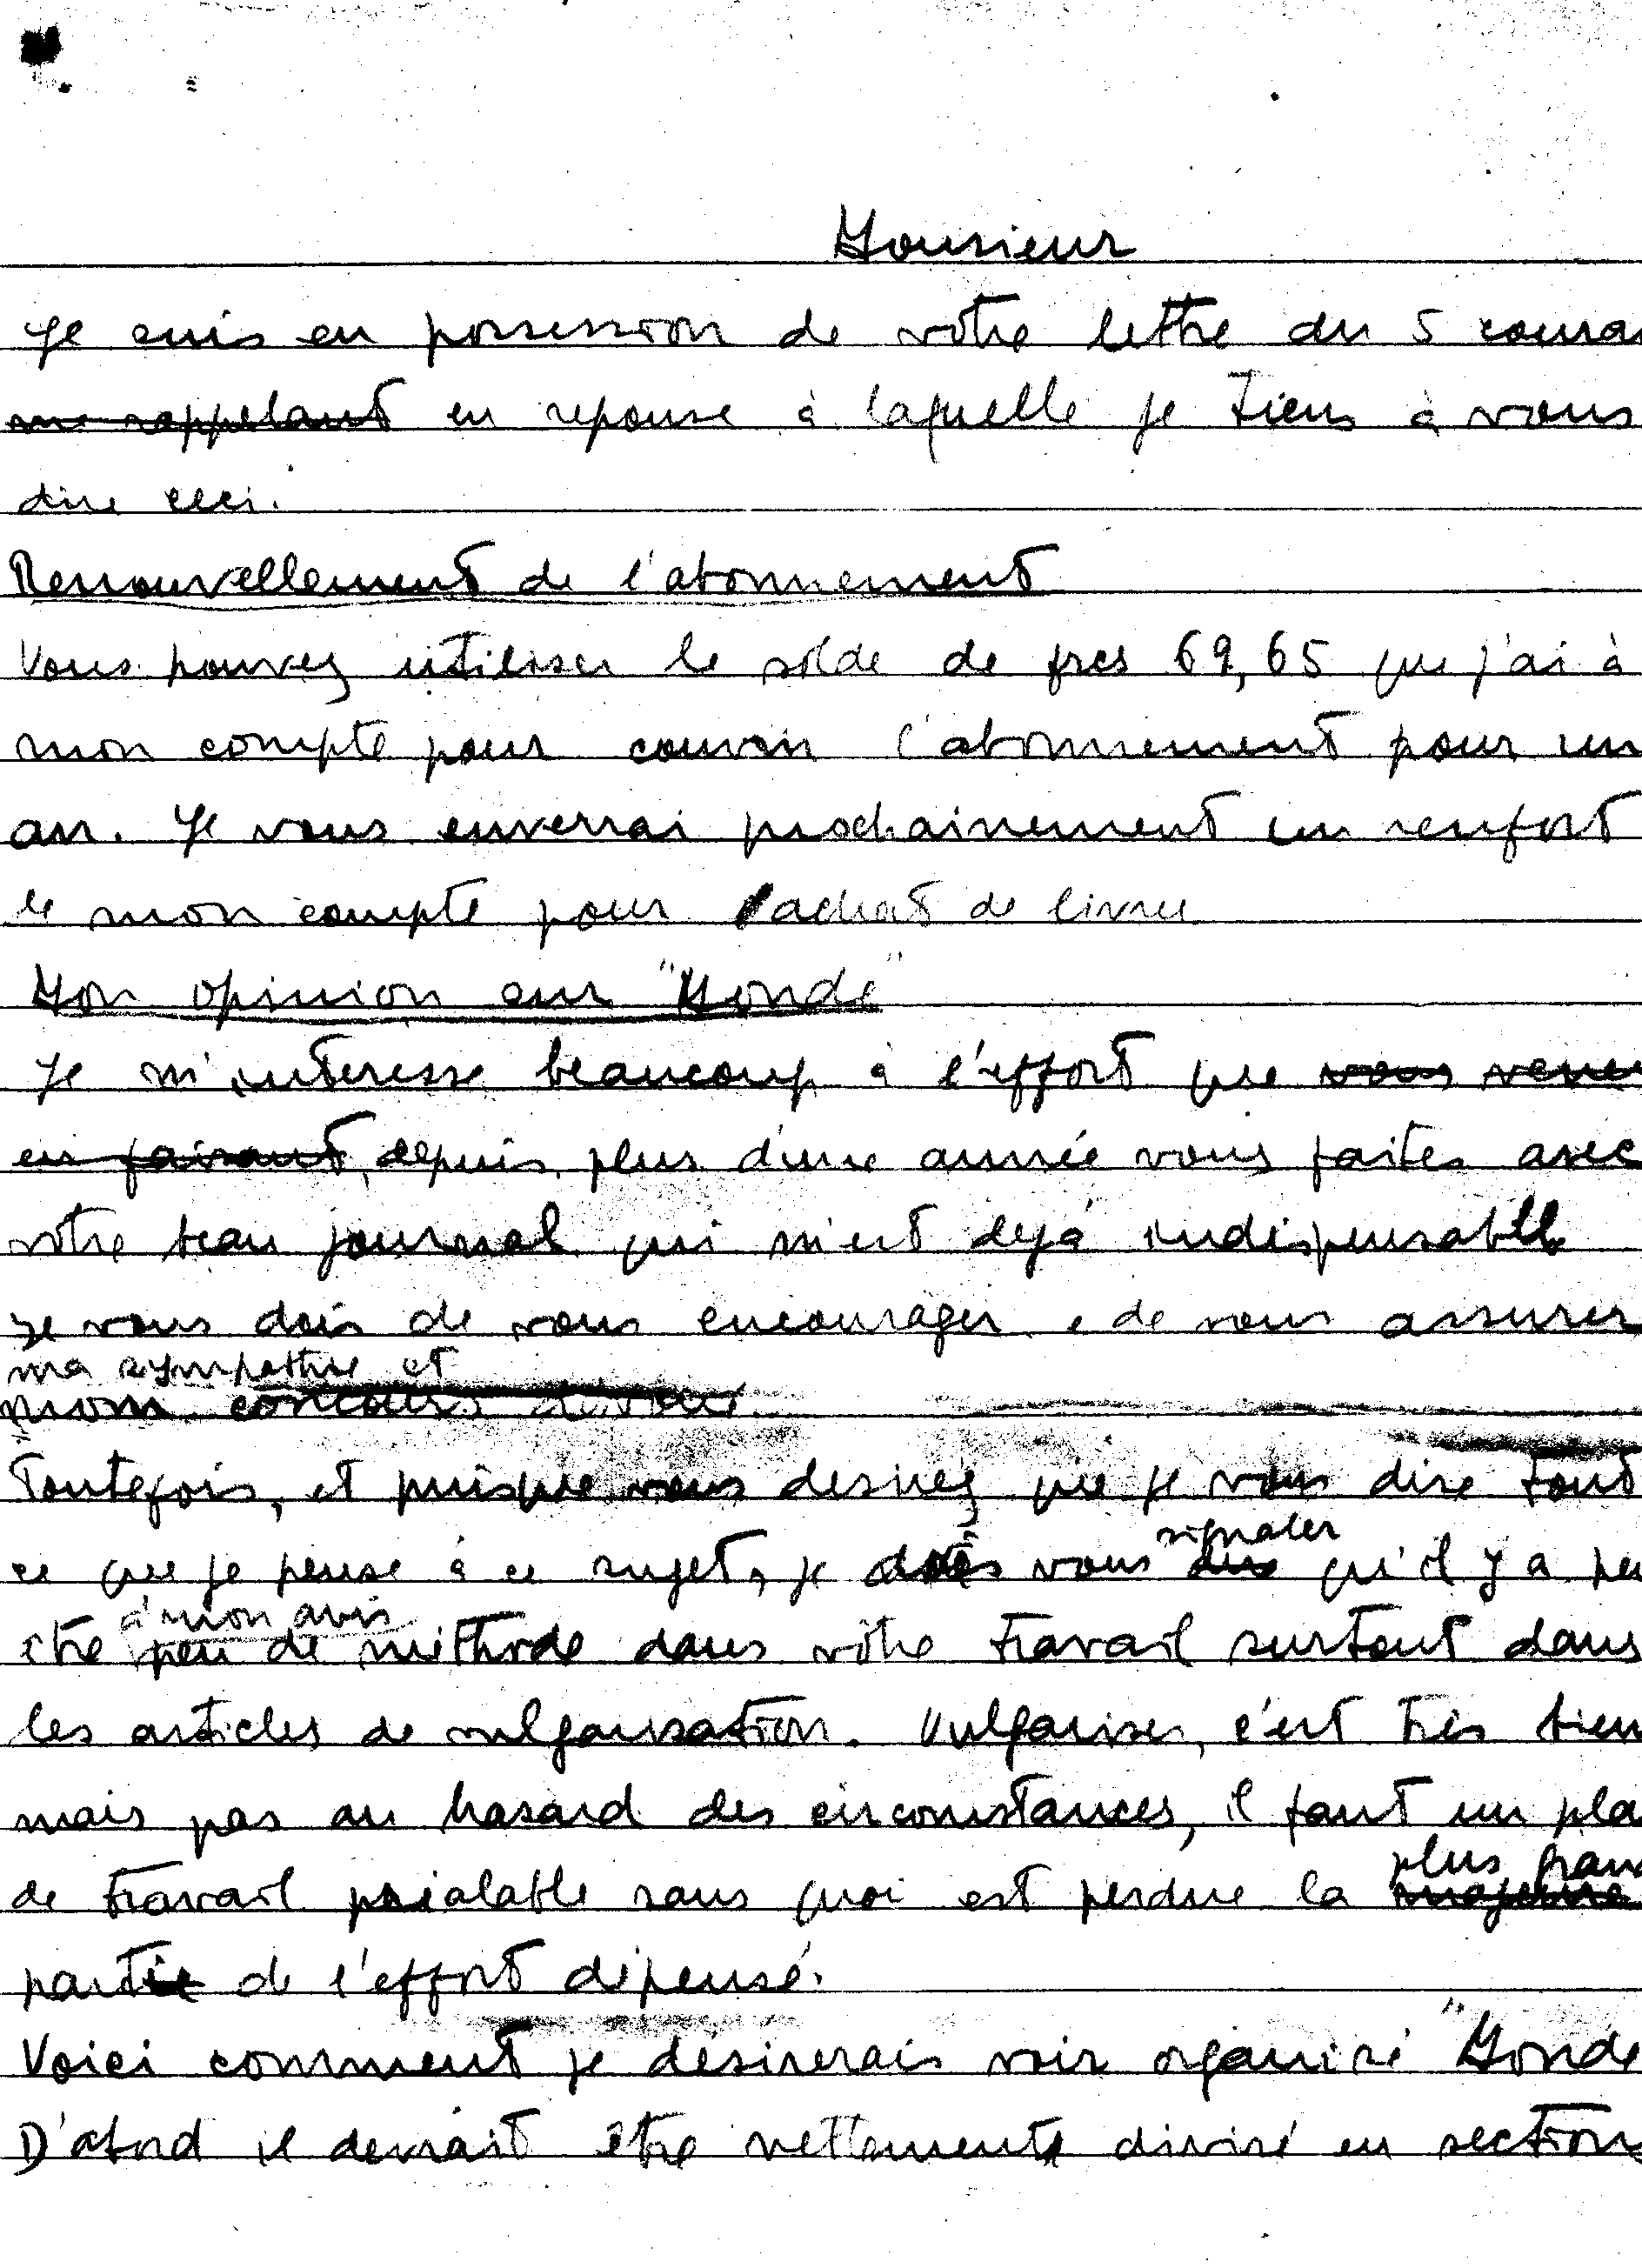 Monsieur
Je suis en possession de votre lettre du 5 coura
me rappelant en reponse à laquelle je tiens à vous
dire ceci.
Renouvellement de l'abonnement
Vous pouvez utiliser le solde de frcs 69,65 que j'ai à
mon compte pour couvrir l'abonnement pour un
an. Je vous enverrai prochainement un renfort
de mon compte pour achat de livres
Mon opinion sur "Monde"
Je m'interesse beaucoup à l'effort que vous venez
en faisant, depuis plus d'une année vous faites avec
votre beau journal qui m'est dejà indispensable
Je vous dois de vous encourager e de vous assurer
ma sympathie et
mon concours devoué.
Toutefois, et puisque vous desirez que je vous dise tout
signaler
ce que je pense à ce sujet, je dois vous dire qu'il y a peu
à mon avis
être peu de méthode dans vôtre travail surtout dans
les articles de vulgarisation. Vulgariser, c'est très bien
mais pas au hasard des circonstances, il faut un pla
plus gran
de travail préalable sans quoi est perdue la majeure
partie de l'effort dépensé.
Voici comment je desirerais voir organisé "Monde
D'abord il devrait être nettement divisé en section